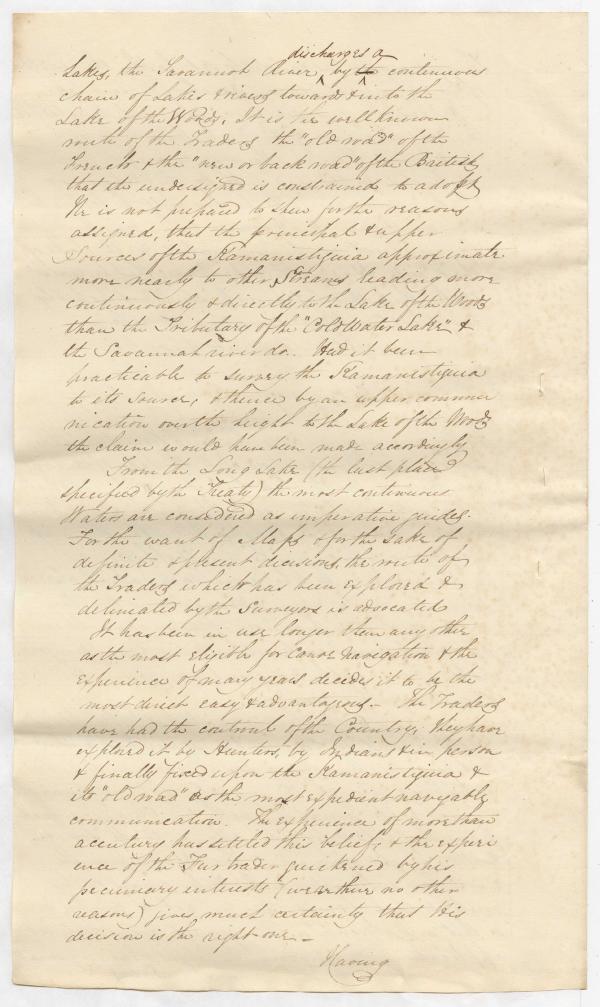 discharges a
Lakes, the Savannah River, by the continuous
chain of Lakes & rivers towards & into the
Lake of the Woods. It is the well known
route of the Traders the "old road" of the
French & the "new or back road" of the British
that the undersigned is constrained to adopt
He is not prepared to shew for the reasons
assigned, that the principal & upper
Sources of the Kamanistiguia approximate
more nearly to other Streams leading more
continuously & directly to the Lake of the Woods
than the Tributary of the "Cold Water Lake" &
the Savannah river do. Had it been
practicable to survey the Kamanistiguia
to its source, & thence by an upper commu
nication over the height to the Lake of the Woods
the claim would have been made accordingly
From the Long Lake (the last place
specified by the Treaty) the most continuous
Waters are considered as imperative guides.
For the want of Maps & for the sake of
definite & present decisions, the route of
the Traders which has been explored &
deliniated by the Surveyors is advocated
It has been in use longer then any other
as the most eligible for Canoe navigation & the
experience of many years decides it to be the
most direct easy & advantagous. - The Traders
have had the controul of the Country; they have
explored it by Hunters, by Indians & in person
& finally fixed upon the Kamanistiguia &
its "old road" as the most expedient navigable
communication. The experience of more than
a century has settled this belief, & the experi
ence of the Fur trader quickened by his
pecuniary interests (were there no other
reasons) gives much certainty that his
decision is the right one -
Having